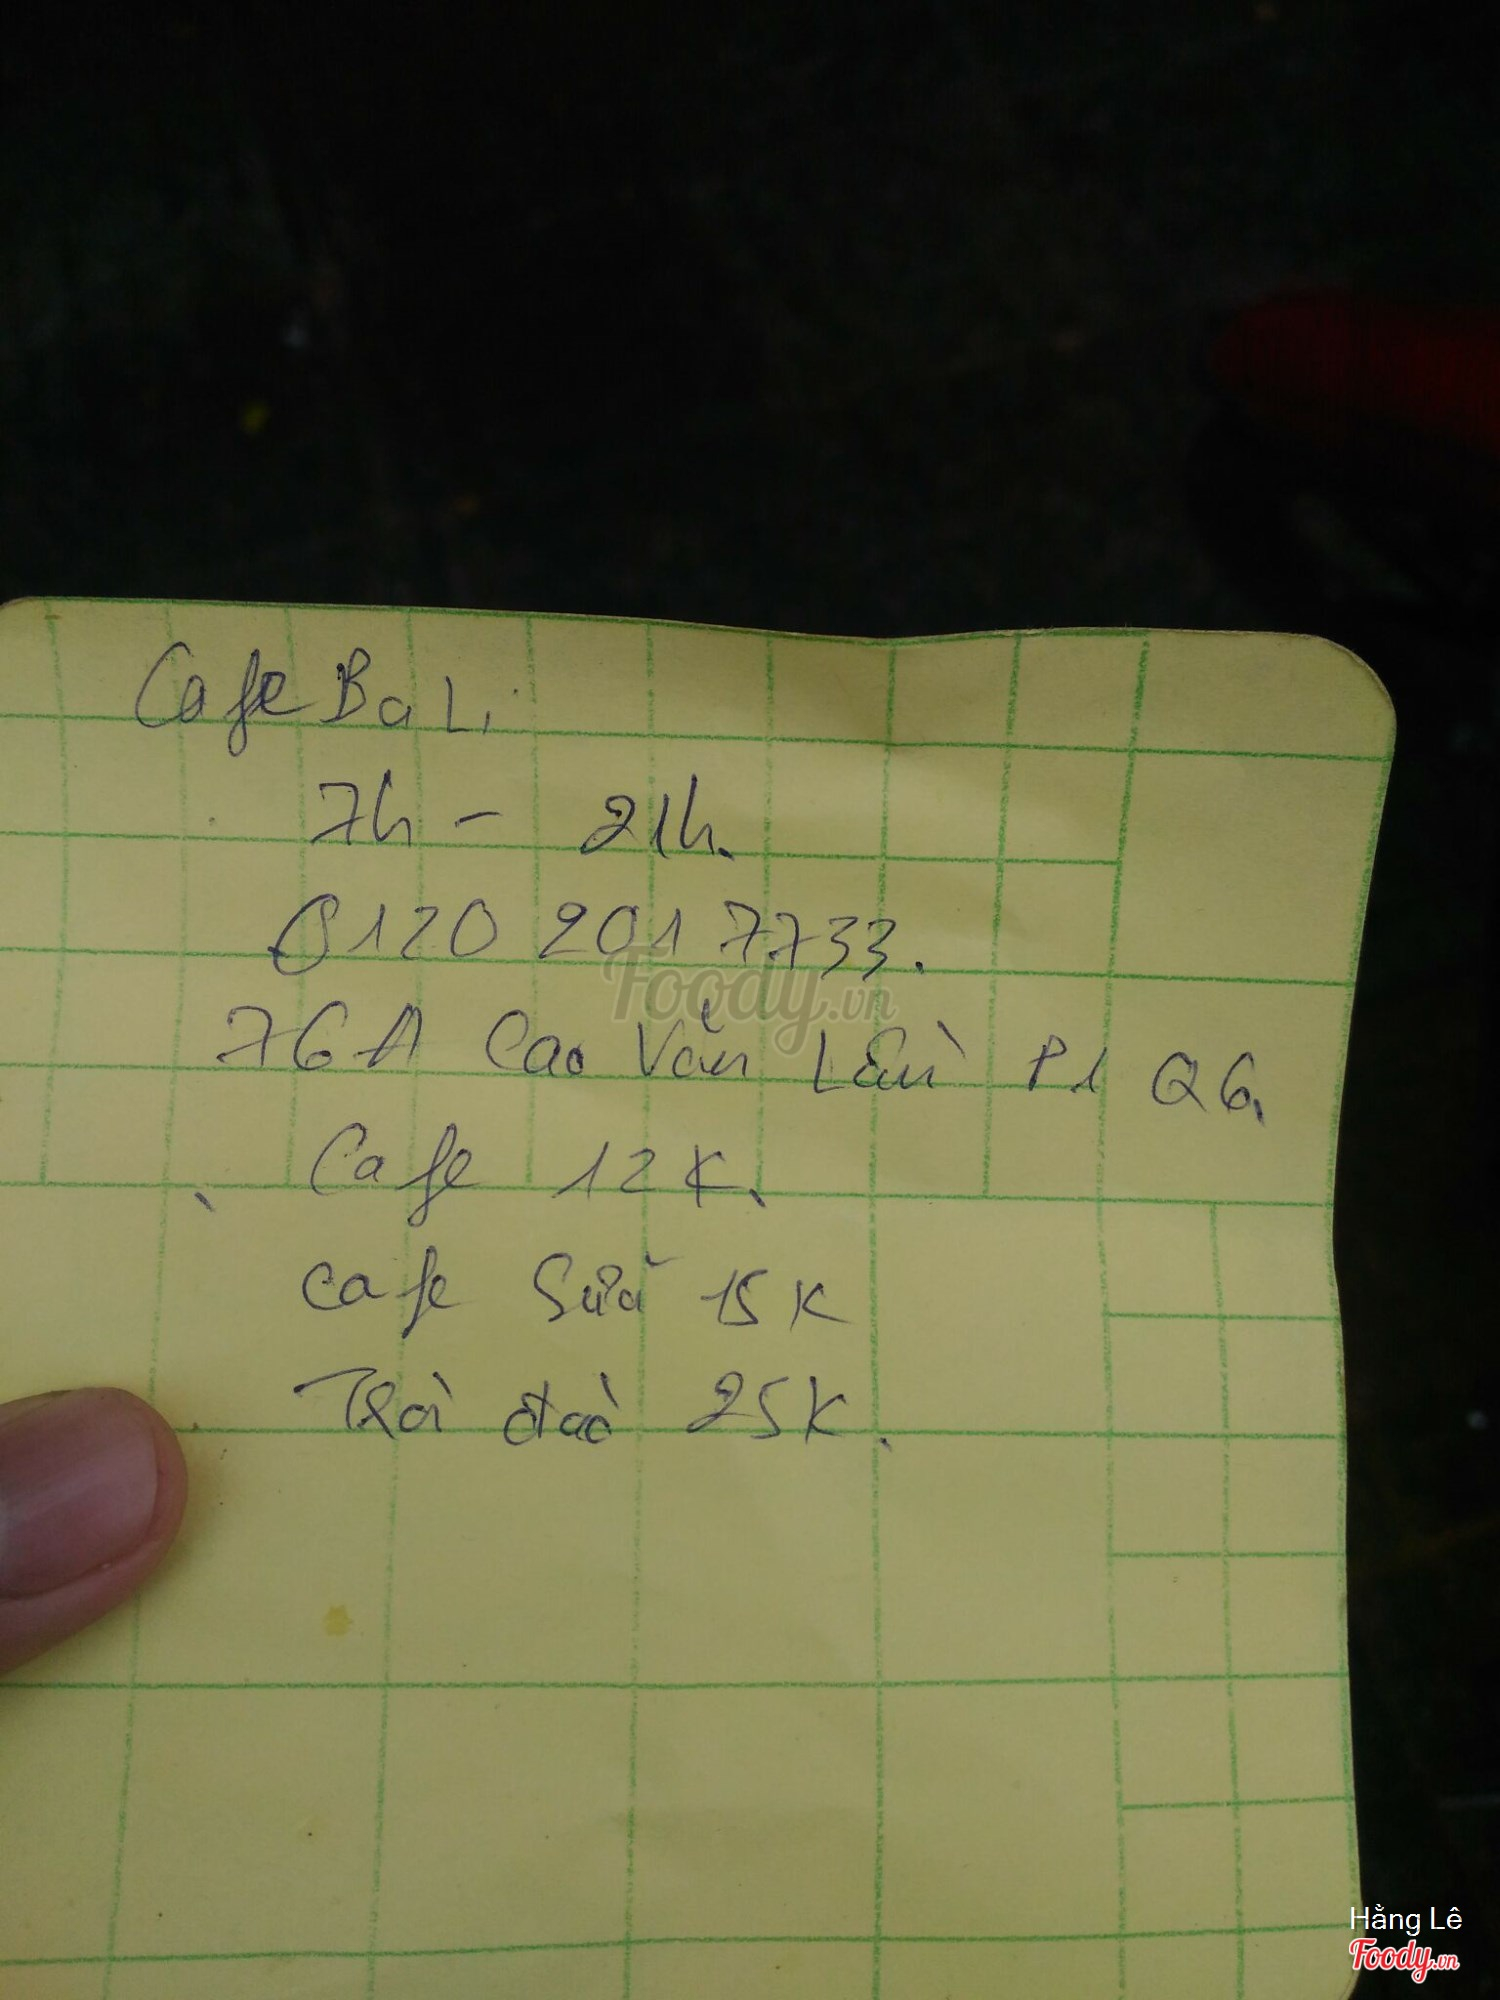 Cafe BaLi
7h - 21h.
0120 201 7733.
76A Cao Văn Lầu P1 Q6.
Cafe 12K.
cafe sữa 15K
Trà đào 25K.
Foody.vn
Hằng Lê
Foody.vn